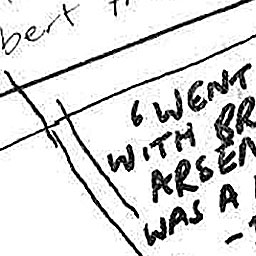 bert
"WENT
WITH BR
ARSEN
WAS A